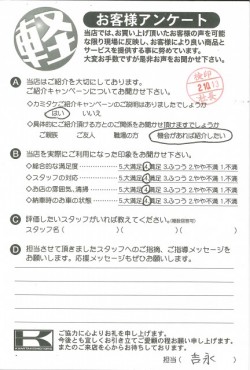 軽
お客様アンケート
当店では、お買い上げ頂いたお客様の声を可能
な限り現場に反映し、お客様により良い商品と
サービスを提供する事に努めています。
大変お手数ですが是非お声をお聞かせ下さい。
Ⓐ 当店はご紹介を大切にしております。
ご紹介キャンペーンについてお聞かせ下さい。
◇カミタケご紹介キャンペーンのご説明はありましたでしょうか
はい いいえ
◇具体的にご紹介頂ける方とのご関係をお聞かせ頂けますでしょうか
ご親族 ご友人 職場の方 機会があれば紹介したい
Ⓑ 当店を実際にご利用になった印象をお聞かせ下さい。
◇総合的な満足度 5.大満足 4.満足 3.ふつう 2.やや不満 1.不満
◇スタッフの対応 5.大満足 4.満足 3.ふつう 2.やや不満 1.不満
◇お店の雰囲気、清掃 5.大満足 4.満足 3.ふつう 2.やや不満 1.不満
◇納車時のお車の状態 5.大満足 4.満足 3.ふつう 2.やや不満 1.不満
Ⓒ 評価したいスタッフがいれば教えてください。(複数回答可)
スタッフ名( )( )( )
Ⓓ 担当させて頂きましたスタッフへのご指摘、ご指導メッセージを
お願いします。応援メッセージもぜひお願いします。
K
ご協力に心よりお礼を申し上げます。
今後とも宜しくお引き立てご愛顧の程お願い申し上げます。
またのご来店を心からお待ちしております。
担当( 吉永 )